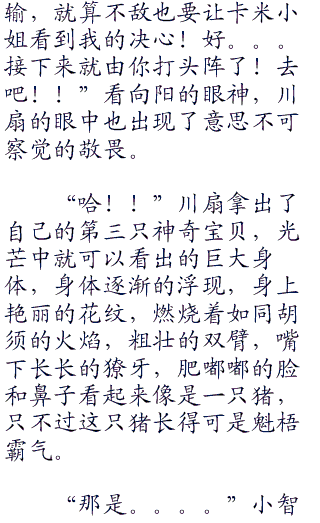 输，就算不敌也要让卡米小
姐看到我的决心！好。。。
接下来就由你打头阵了！去
吧！！”看向阳的眼神，川
扇的眼中也出现了意思不可
察觉的敬畏。
“哈！！”川扇拿出了
自己的第三只神奇宝贝，光
芒中就可以看出的巨大身
体，身体逐渐的浮现，身上
艳丽的花纹，燃烧着如同胡
须的火焰，粗壮的双臂，嘴
下长长的獠牙，肥嘟嘟的脸
和鼻子看起来像是一只猪，
只不过这只猪长得可是魁梧
霸气。
“那是。。。。”小智